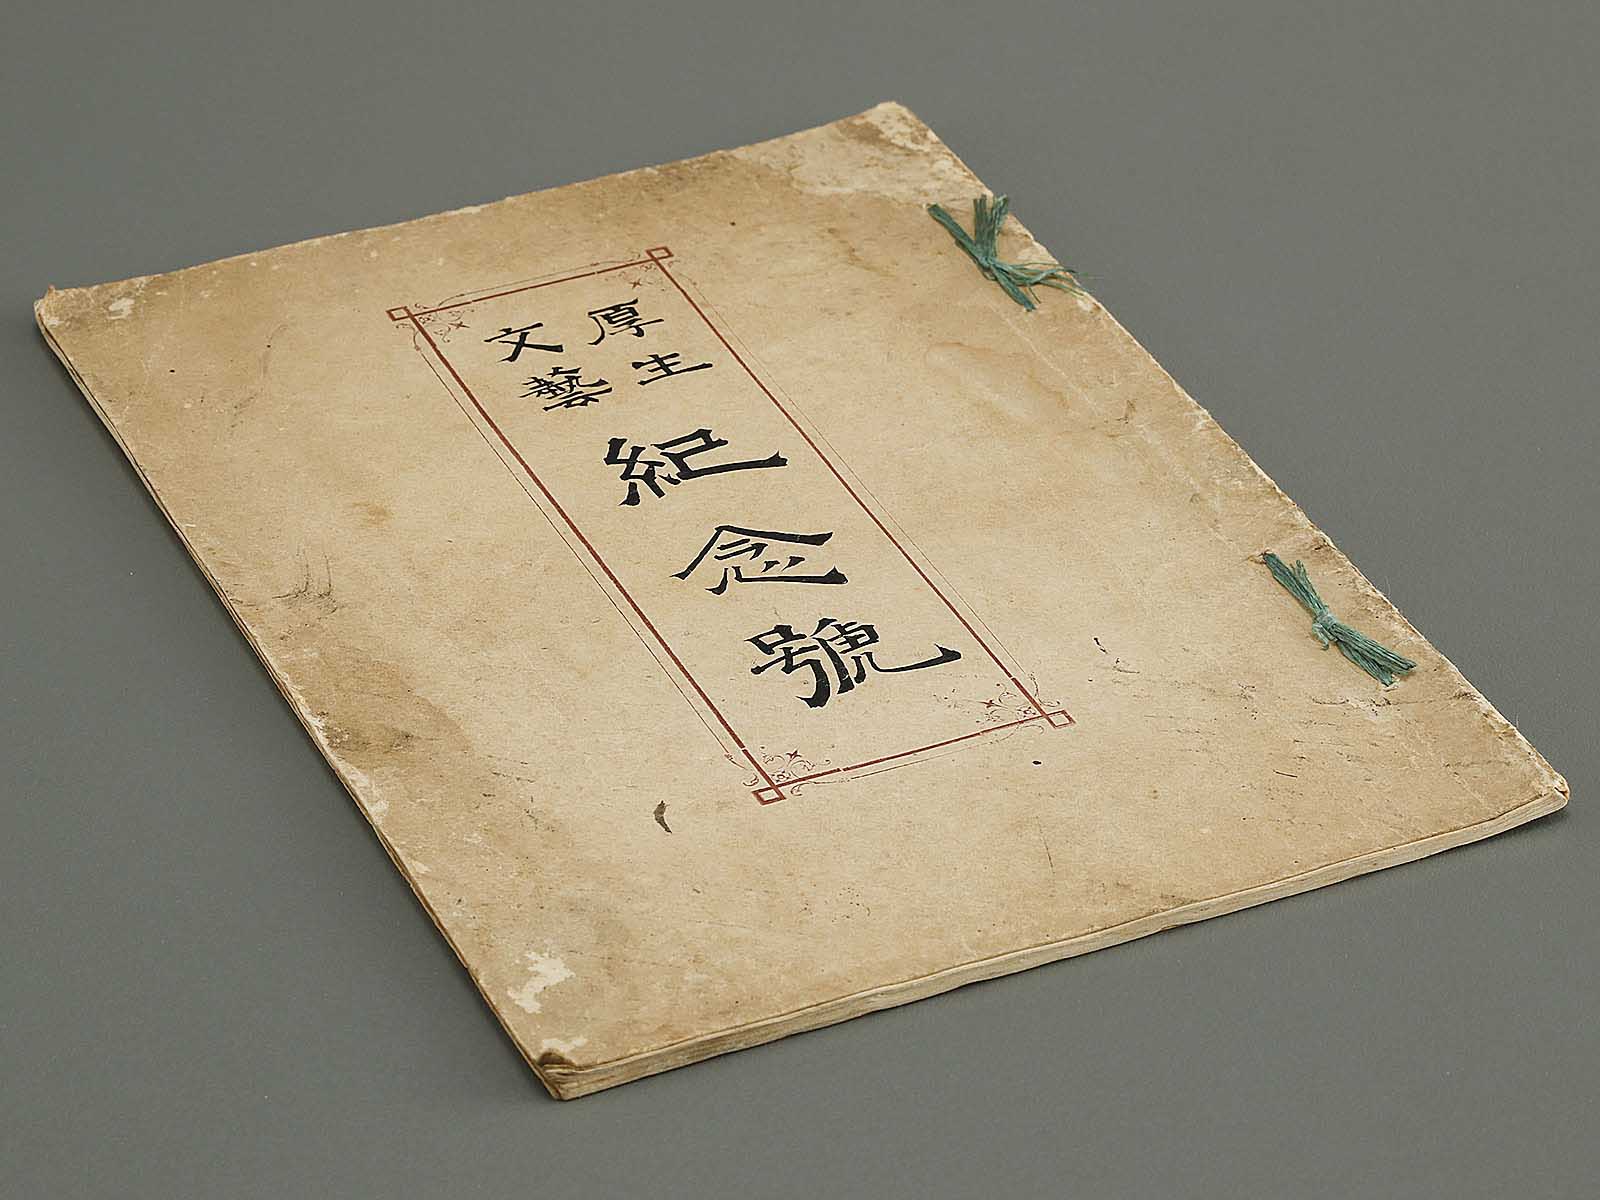 厚生
文藝
紀念號